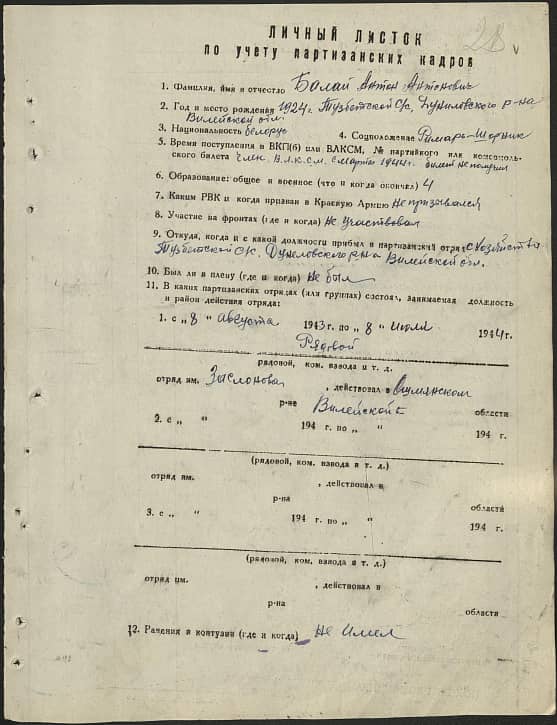 28 v
ЛИЧНЫЙ ЛИСТОК
по учету партизанских кадров
1. Фамилия, имя и отчество Балай Антон Антонович
2. Год и место рождения 1924 г. Тузбетской С/с. Дуниловского р-на
Вилейской обл.
3. Национальность белорус 4. Соцположение Римарь-Шорник
5. Время поступления в ВКП(б) или ВЛКСМ, № партийного или комсомоль-
ского билета Член В.Л.К.С.М. с марта 1944 г. билет не получил
6. Образование: общее и военное (что и когда окончил) 4
7. Каким РВК и когда призван в Красную Армию Не призывался
8. Участие на фронтах (где и когда) Не участвовал
9. Откуда, когда и с какой должности прибыл в партизанский отряд с хозяйства
Тузбетской С/с. Дуниловского р-на Вилейской обл.
10. Был ли в плену (где и когда) Не был
11. В каких партизанских отрядах (или группах) состоял, занимаемая должность
и район действия отряда:
1. с „ 8 " Августа 1943 г. по „ 8 " Июля 1944 г.
Рядовой
рядовой, ком. взвода и т. д.
отряд им. Заслонова , действовал в Ошмянском
р-не Вилейской области
2. с „ " 194 г. по „ " 194 г.
(рядовой, ком. взвода и т. д.)
отряд им. , действовал в
р-на области
3. с „ " 194 г. по „ " 194 г.
(рядовой, ком. взвода и т. д.)
отряд им. , действовал в
р-на
области
12. Ранения и контузии (где и когда) Не имел